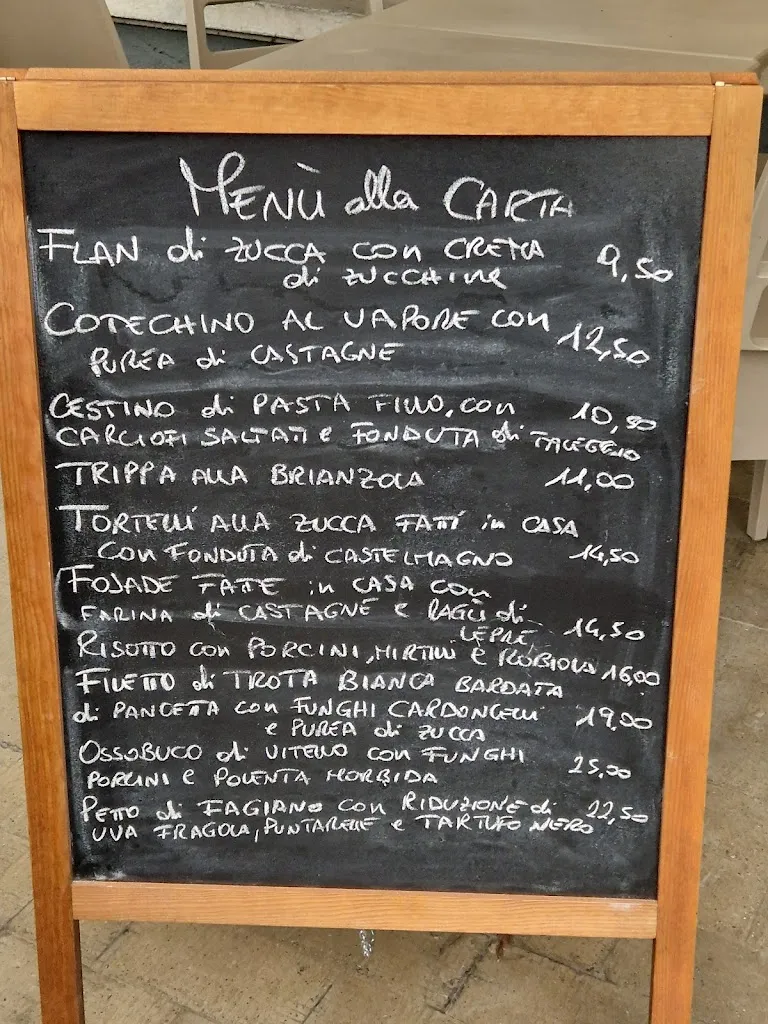 MENÙ alla CARTA
FLAN di ZUCCA con CREMA 9,50
di ZUCCHINE
COTECHINO AL VAPORE con 12,50
PUREA di CASTAGNE
CESTINO di PASTA FILLO, con 10,50
CARCIOFI SALTATI e FONDUTA di TALEGGIO
TRIPPA ALLA BRIANZOLA 11,00
TORTELLI ALLA ZUCCA FATTI in CASA
con FONDUTA di CASTELMAGNO 14,50
FOJADE FATTE in CASA con
FARINA di CASTAGNE e RAGÙ di
LEPRE 14,50
RISOTTO con PORCINI, MIRTILLI e ROBIOLA 16,00
FILETTO di TROTA BIANCA BARDATA
di PANCETTA con FUNGHI CARDONCELLI 19,00
e PUREA di ZUCCA
OSSOBUCO di VITELLO con FUNGHI
PORCINI e POLENTA MORBIDA 25,00
PETTO di FAGIANO con RIDUZIONE di 22,50
UVA FRAGOLA, PUNTARELLE e TARTUFO NERO